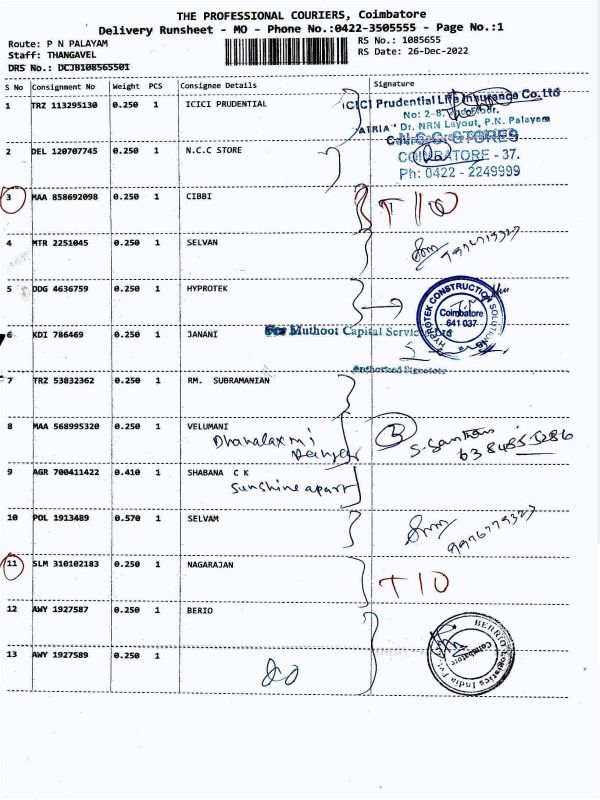 THE PROFESSIONAL COURIERS, Coimbatore
Delivery Runsheet - MO - Phone No.:0422-3505555 - Page No.:1
Route: P N PALAYAM
RS No.: 1085655
Staff: THANGAVEL
RS Date: 26-Dec-2022
DRS No.: DCJB108565501
S No Consignment No Weight PCS Consignee Details Signature
1 TRZ 113295130 0.250 1 ICICI PRUDENTIAL
ICICI Prudential Life Insurance Co. Ltd
No: 2-8,
"ATRIA" Dr. NRN Layout, P.N. Palayam
2 DEL 120707745 0.250 1 N.C.C STORE
N.C.C. STORES
COIMBATORE - 37.
Ph: 0422 - 2249999
3 MAA 858692098 0.250 1 CIBBI
T 10
4 MTR 2251045 0.250 1 SELVAN
5 DDG 4636759 0.250 1 HYPROTEK
HYPROTEK CONSTRUCTION SOLUTIONS
Coimbatore
641 037.
6 KDI 786469 0.250 1 JANANI
For Muthoot Capital Services Ltd
Authorised Signatory
7 TRZ 53832362 0.250 1 RM. SUBRAMANIAN
8 MAA 568995320 0.250 1 VELUMANI
Dhanalaxmi
9 AGR 700411422 0.410 1 SHABANA C K
Sunshine apart
10 POL 1913489 0.570 1 SELVAM
11 SLM 310102183 0.250 1 NAGARAJAN
T 10
12 AWY 1927587 0.250 1 BERIO
13 AWY 1927589 0.250 1
BERRIO Logistics India Pvt.
Coimbatore